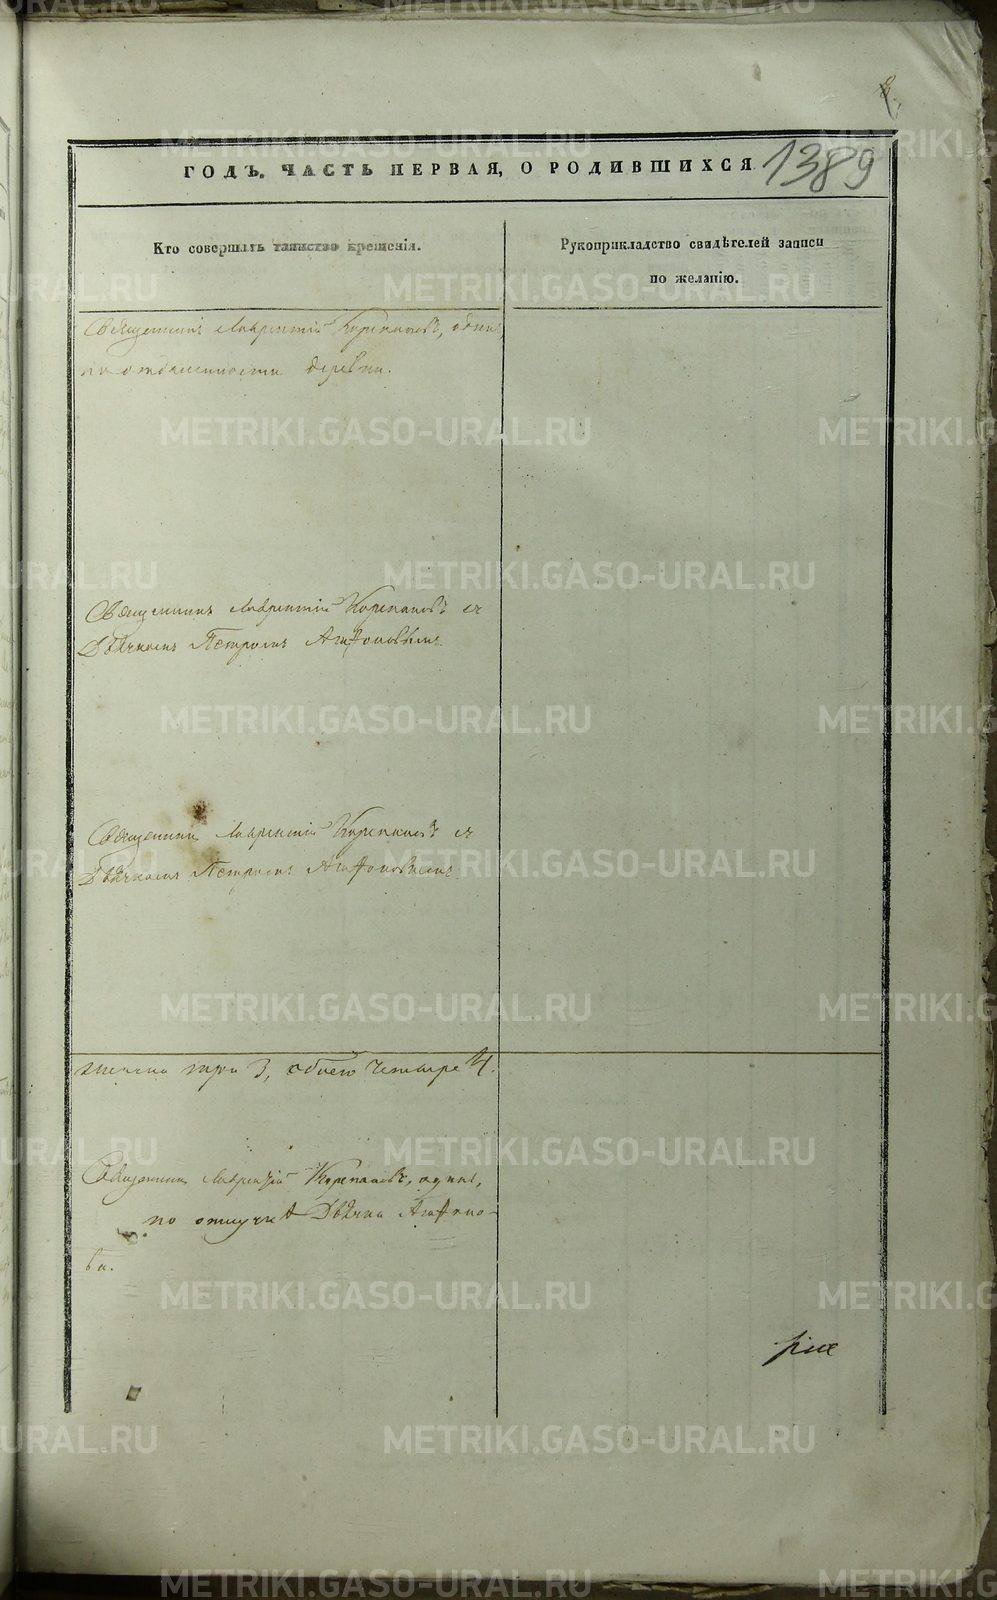 1389
ГОДЪ. ЧАСТЬ ПЕРВАЯ, О РОДИВШИХСЯ
Кто совершалъ таинство крещенія.
Рукоприкладство свидѣтелей записи
по желанію.
Священникъ Лаврентій Корепановъ, одинъ
по отдаленности деревни.
Священникъ Лаврентій Корепановъ съ
Дьячкомъ Петромъ Агафоновымъ.
Священникъ Лаврентій Корепановъ съ
Дьячкомъ Петромъ Агафоновымъ
три 3, обоего четыре 4.
Священникъ Лаврентій Корепановъ, одинъ,
по отлучкѣ Дьячка Агафоно-
ва.
METRIKI.GASO-URAL.RU